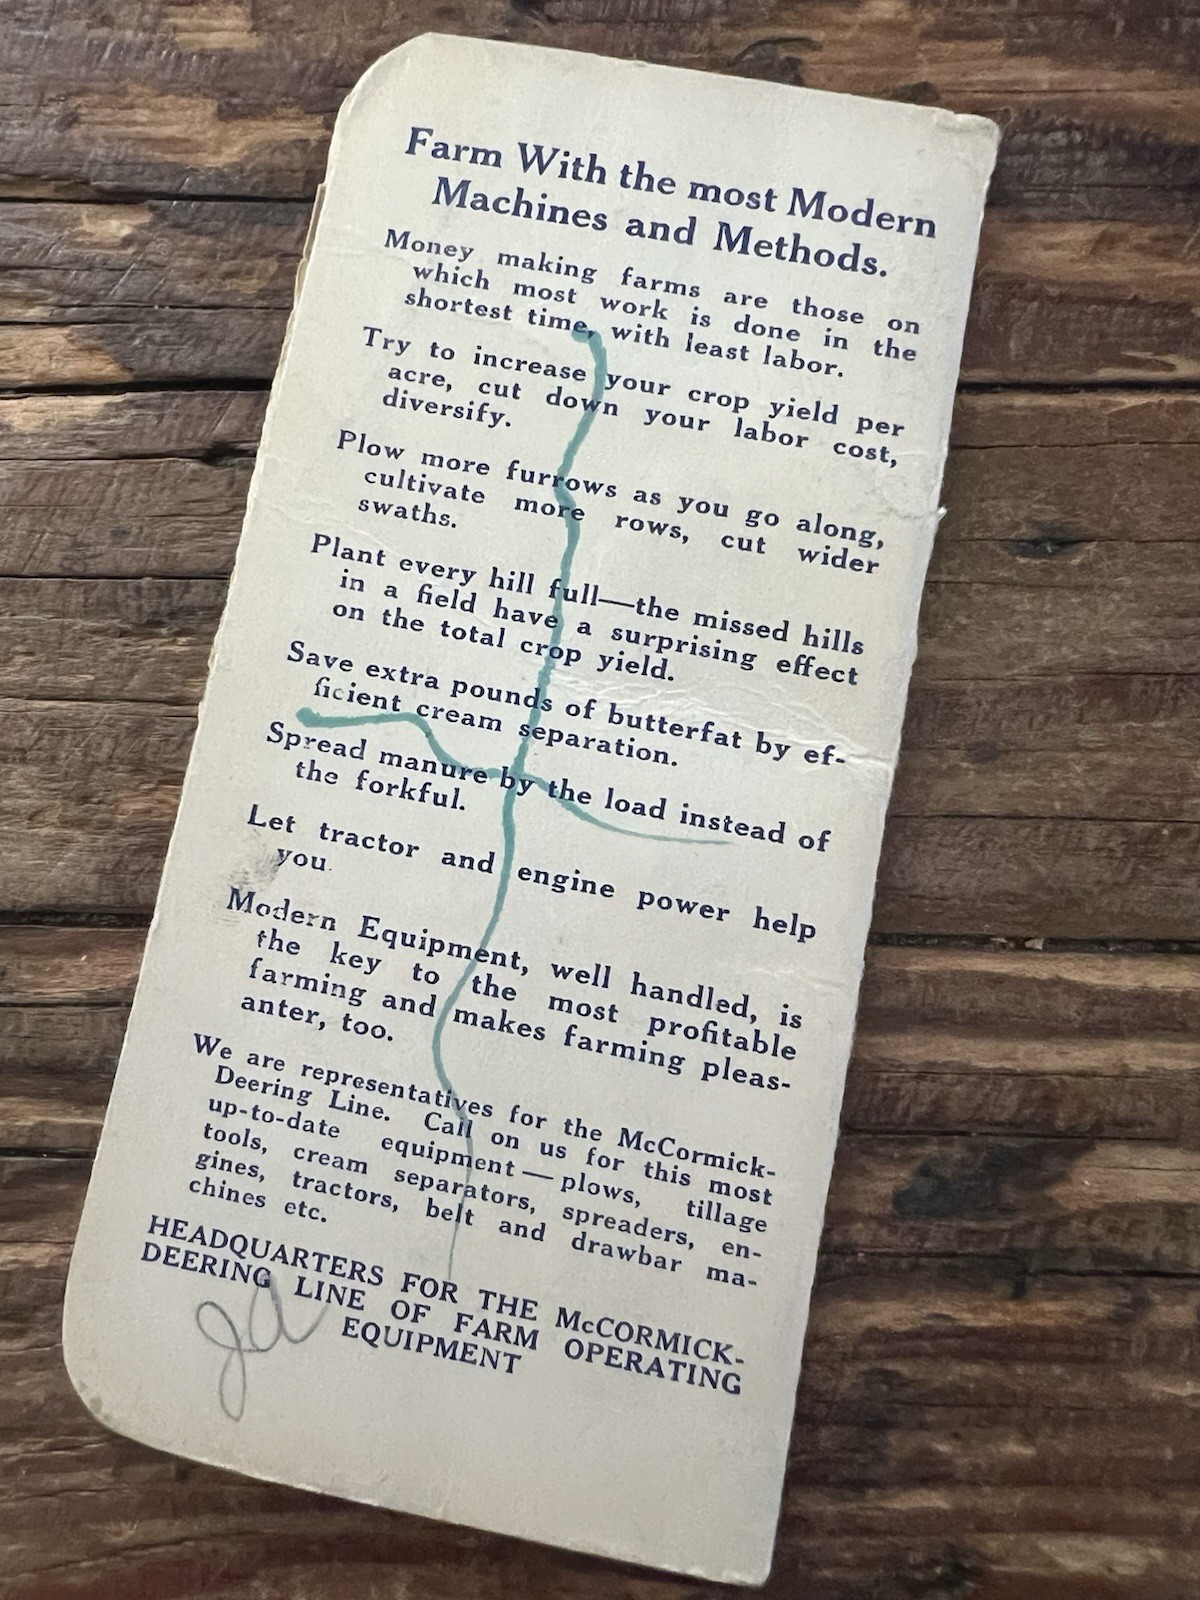 Farm With the most Modern
Machines and Methods.
Money making farms are those on
which most work is done in the
shortest time, with least labor.
Try to increase your crop yield per
acre, cut down your labor cost,
diversify.
Plow more furrows as you go along,
cultivate more rows, cut wider
swaths.
Plant every hill full—the missed hills
in a field have a surprising effect
on the total crop yield.
Save extra pounds of butterfat by ef-
ficient cream separation.
Spread manure by the load instead of
the forkful.
Let tractor and engine power help
you.
Modern Equipment, well handled, is
the key to the most profitable
farming and makes farming pleas-
anter, too.
We are representatives for the McCormick-
Deering Line. Call on us for this most
up-to-date equipment — plows, tillage
tools, cream separators, spreaders, en-
gines, tractors, belt and drawbar ma-
chines etc.
HEADQUARTERS FOR THE McCORMICK-
DEERING LINE OF FARM OPERATING
EQUIPMENT